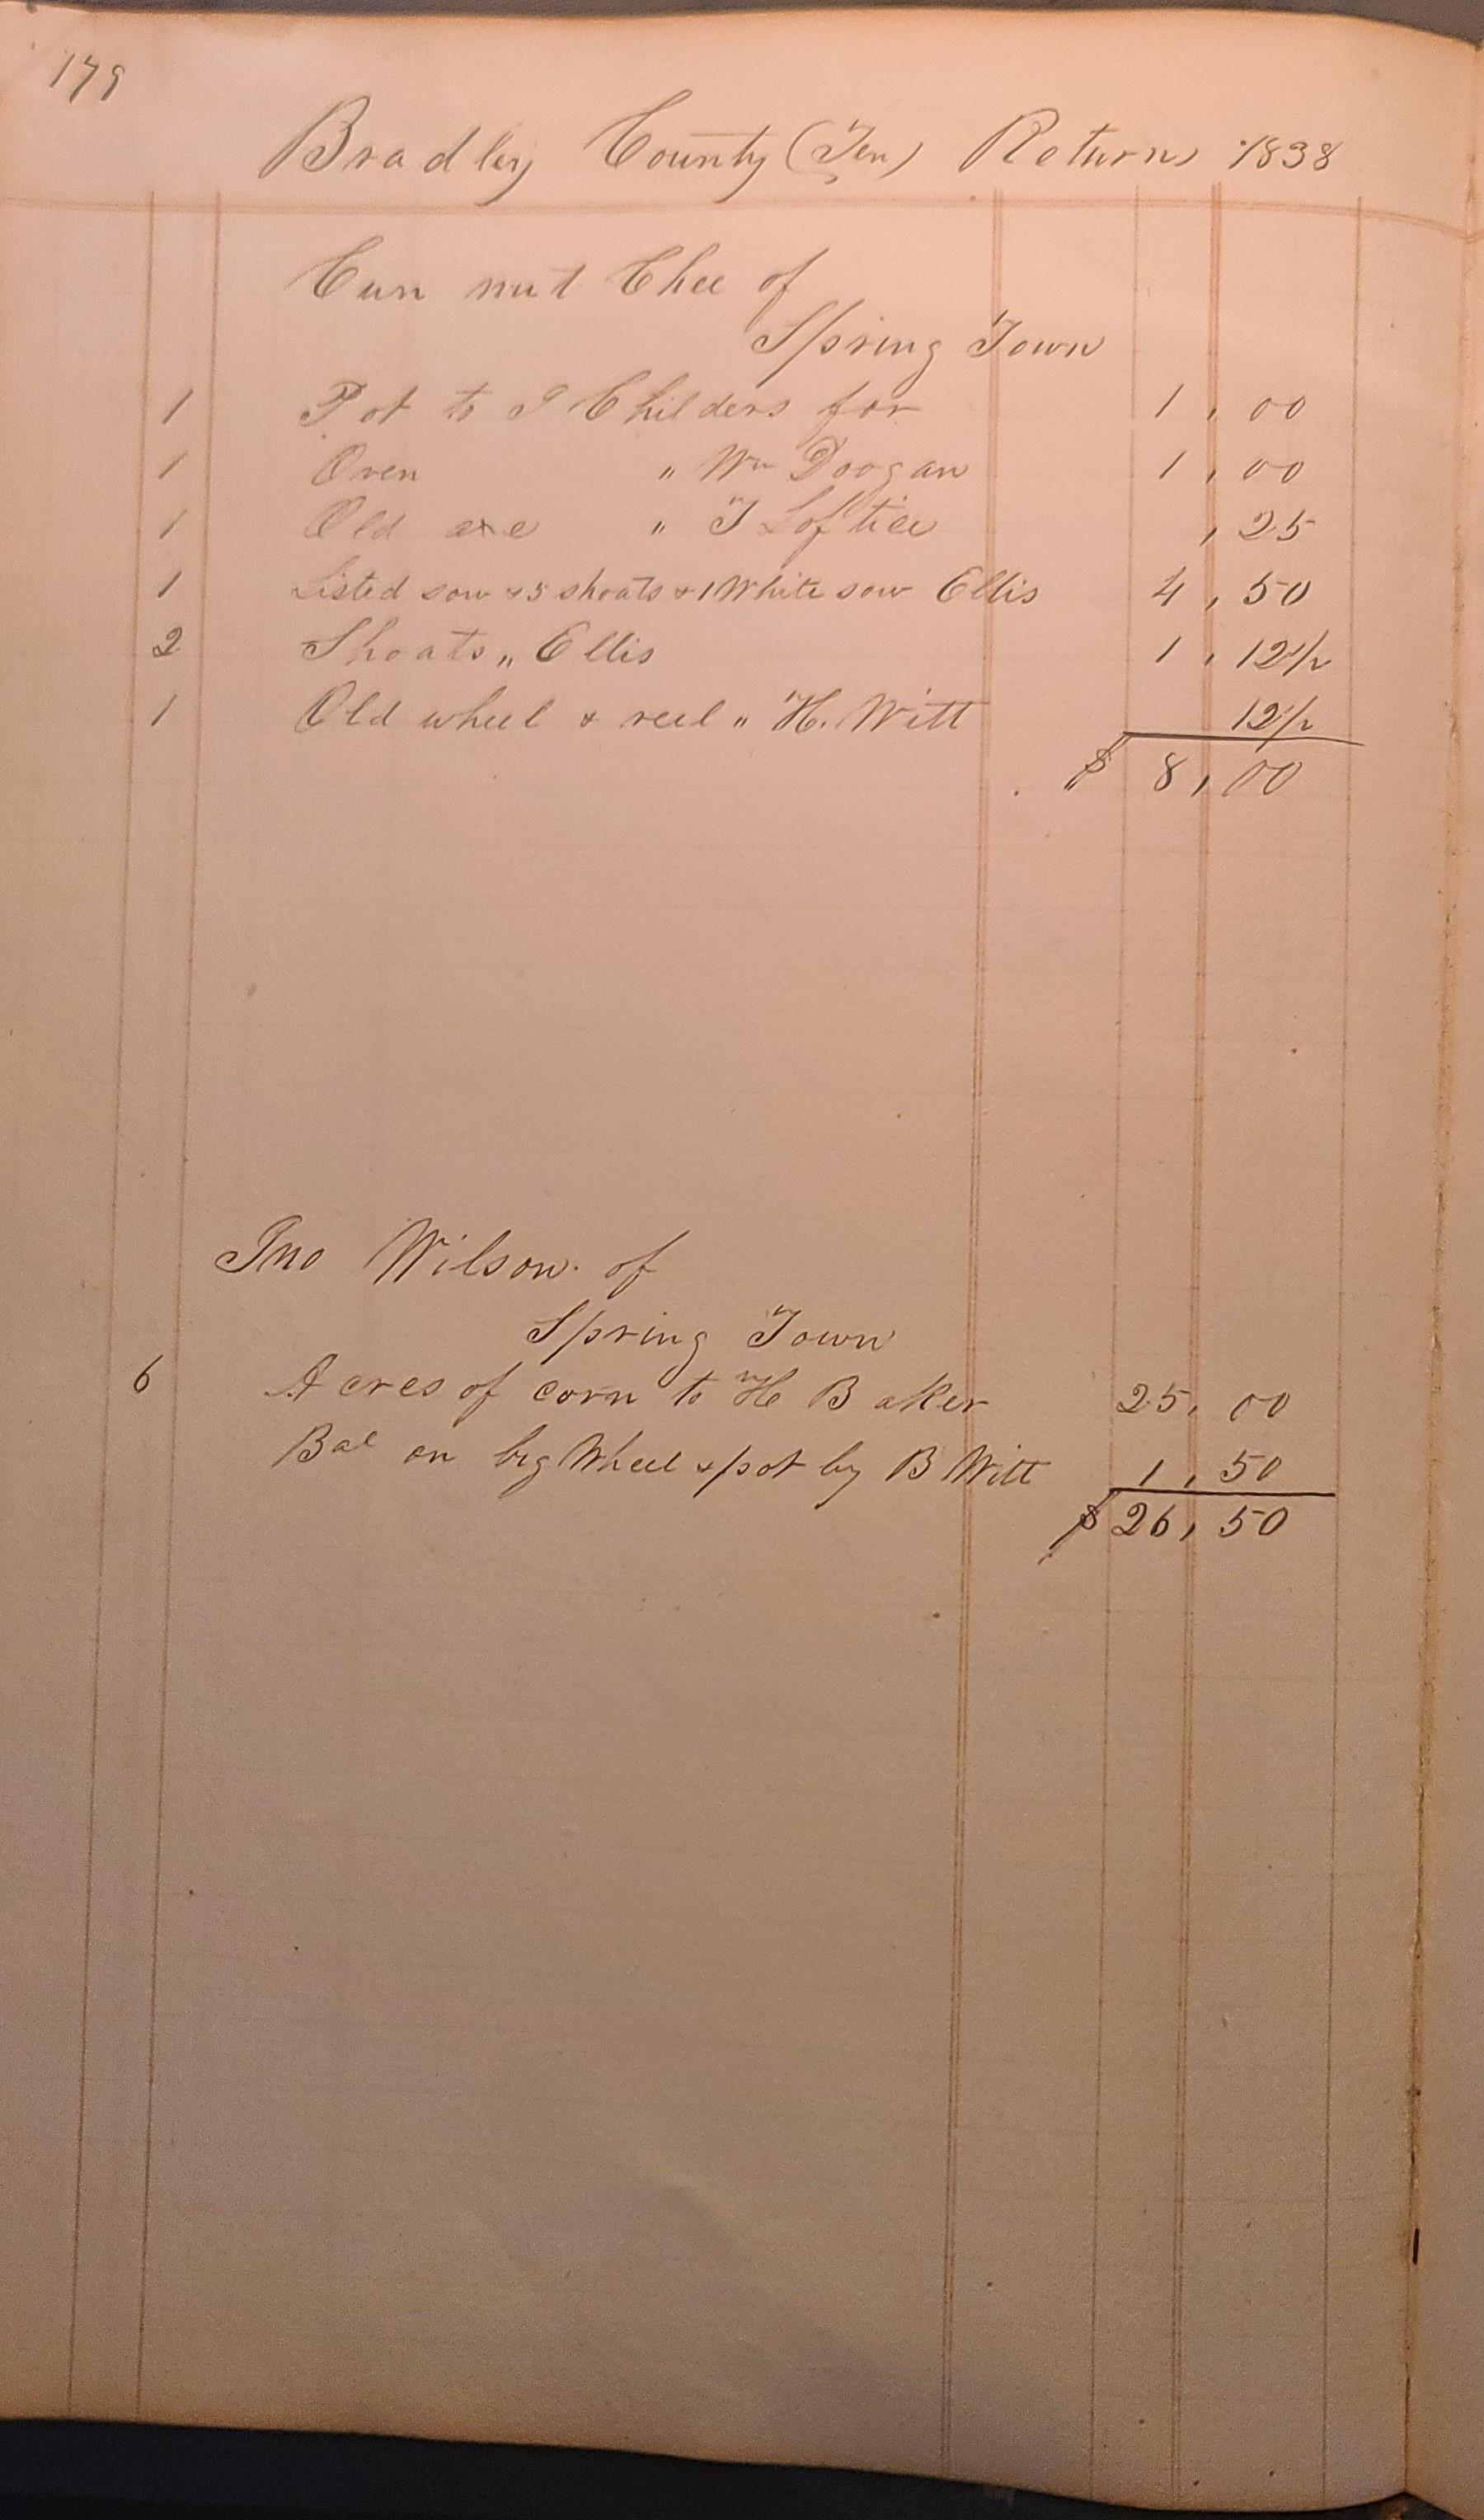 179
Bradley County (Ten) Returns 1838
Cun nut Chee of
Spring Town
1 Pot to J Childers for 1,00
1 Oven " Wm Doogan 1,00
1 Old axe " T Loftice ,25
1 Listed sow & 5 shoats & 1 White sow Ellis 4,50
2 Shoats " Ellis 1,12 1/2
1 Old wheel & reel " H. Witt 12 1/2
$ 8,00
Jno Wilson of
Spring Town
6 Acres of corn to H Baker 25,00
Bal on big Wheel & pot by B Witt 1,50
$ 26,50